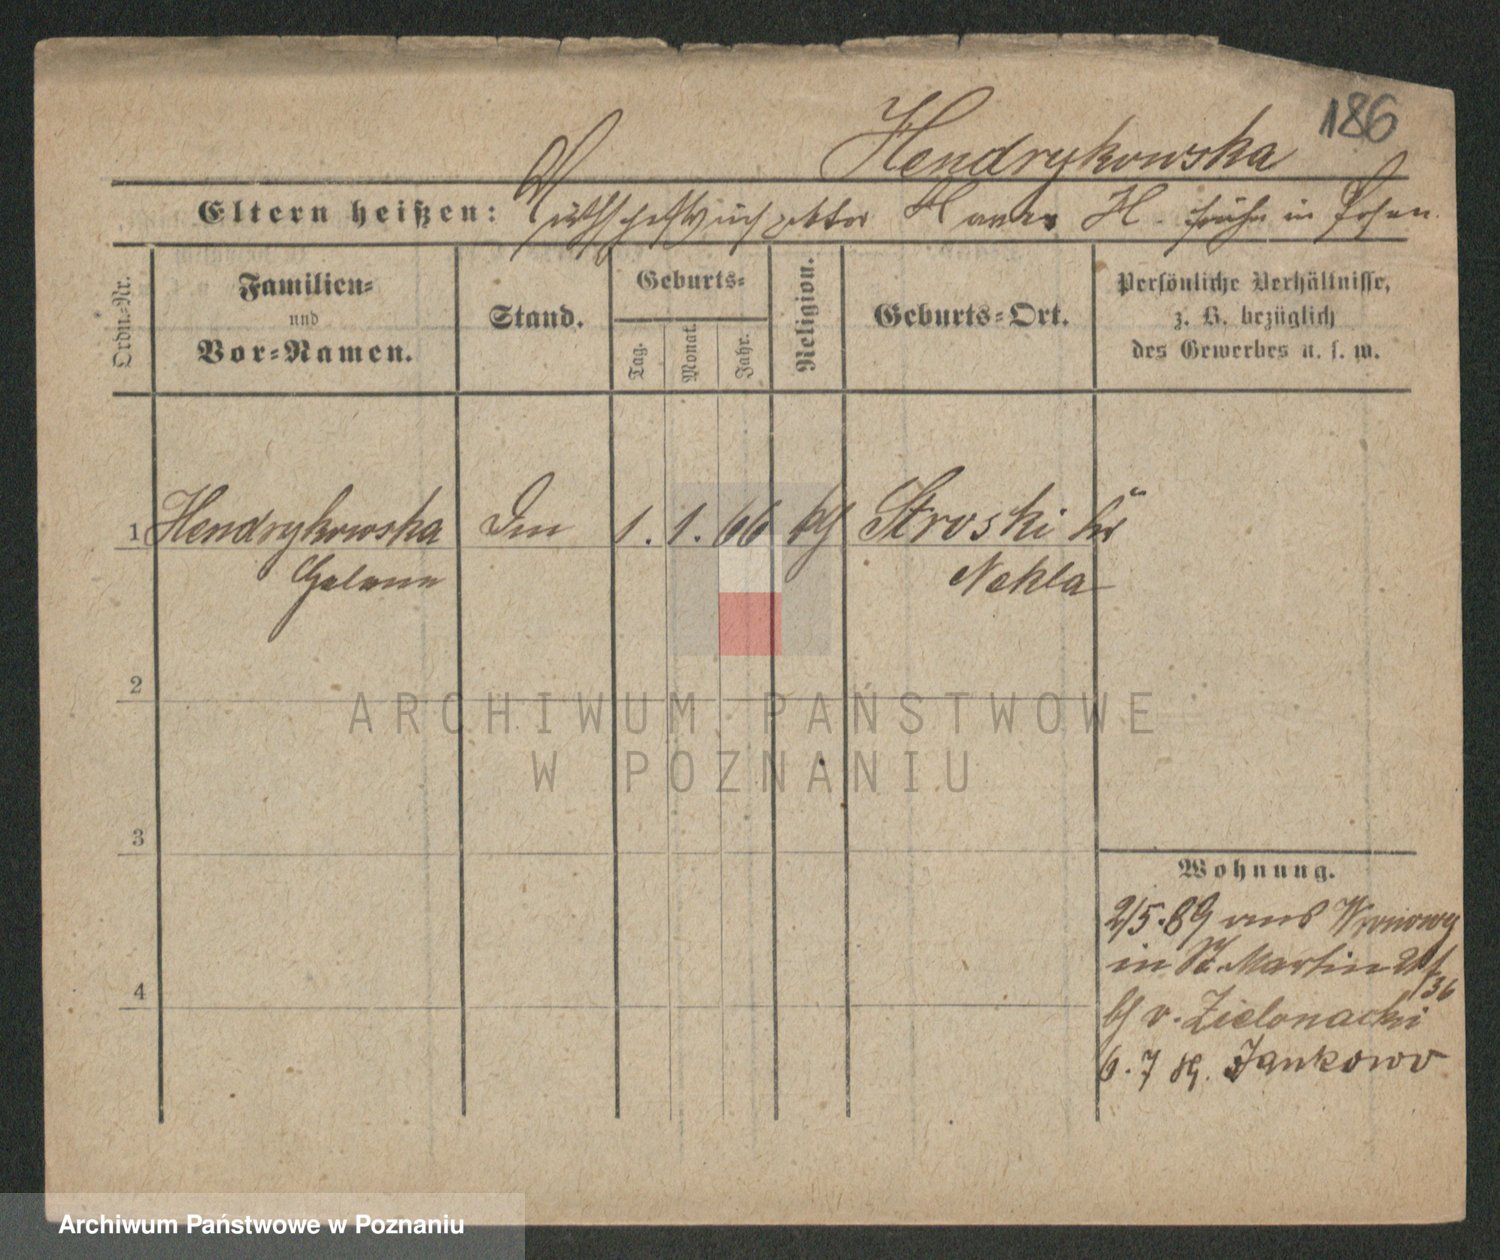 186
Hendrykowska
Eltern heißen: Wirthschaftsinspektor H. früher in Posen.
Ordn.-Nr.
Familien-
und
Vor-Namen.
Stand.
Geburts-
Tag.
Monat.
Jahr.
Religion.
Geburts-Ort.
Persönliche Verhältnisse,
z. B. bezüglich
des Gewerbes u. s. w.
1 Hendrykowska 1. 1. 66 Stroski
Nekla
2
3
4
ARCHIWUM PAŃSTWOWE
W POZNANIU
Wohnung.
2/5.89 aus
in St. Martin
36
v. Zielonacki
6.7 89. Jankowo
Archiwum Państwowe w Poznaniu